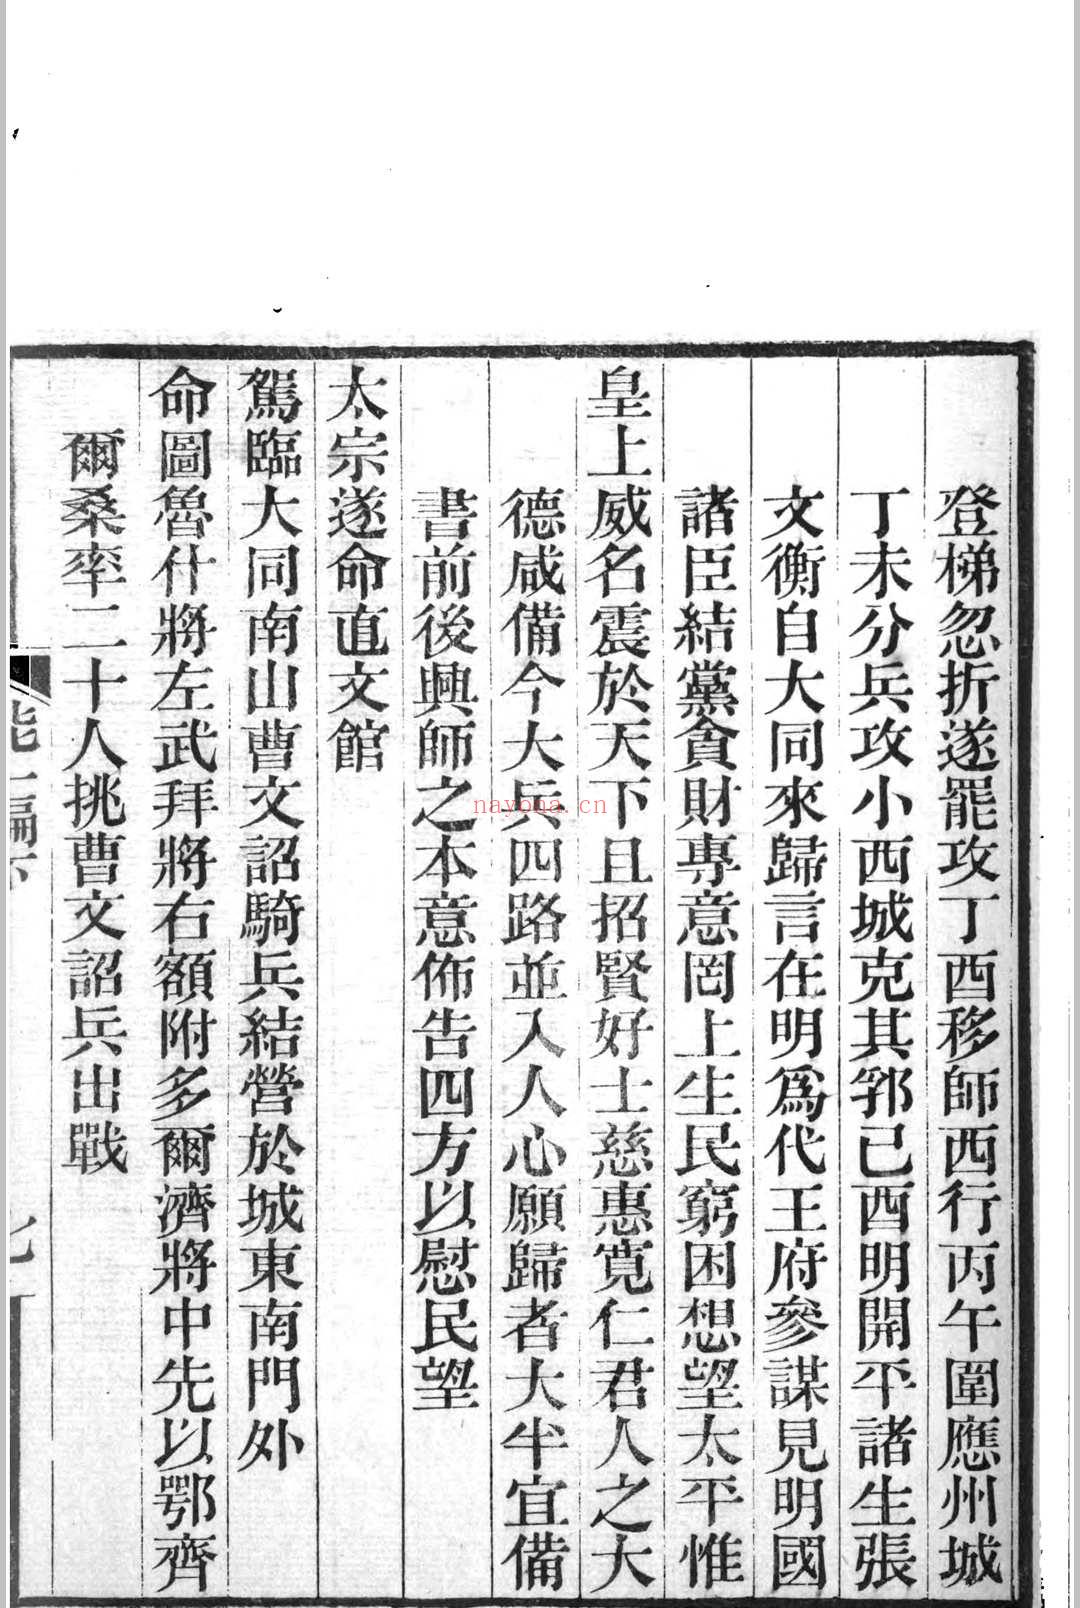 登梯忽折遂罷攻丁酉移師西行丙午圍應州城
丁未分兵攻小西城克其郛已酉明開平諸生張
文衡自大同來歸言在明爲代王府參謀見明國
諸臣結黨貪財專意罔上生民窮困想望太平惟
皇上威名震於天下且招賢好士慈惠寛仁君人之大
德咸備今大兵四路並入人心願歸者大半宜備
書前後興師之本意佈告四方以慰民望
太宗遂命直文館
駕臨大同南山曹文詔騎兵結營於城東南門外
命圖魯什將左武拜將右額附多爾濟將中先以鄂齊
爾桑率二十人挑曹文詔兵出戰
nayona.cn